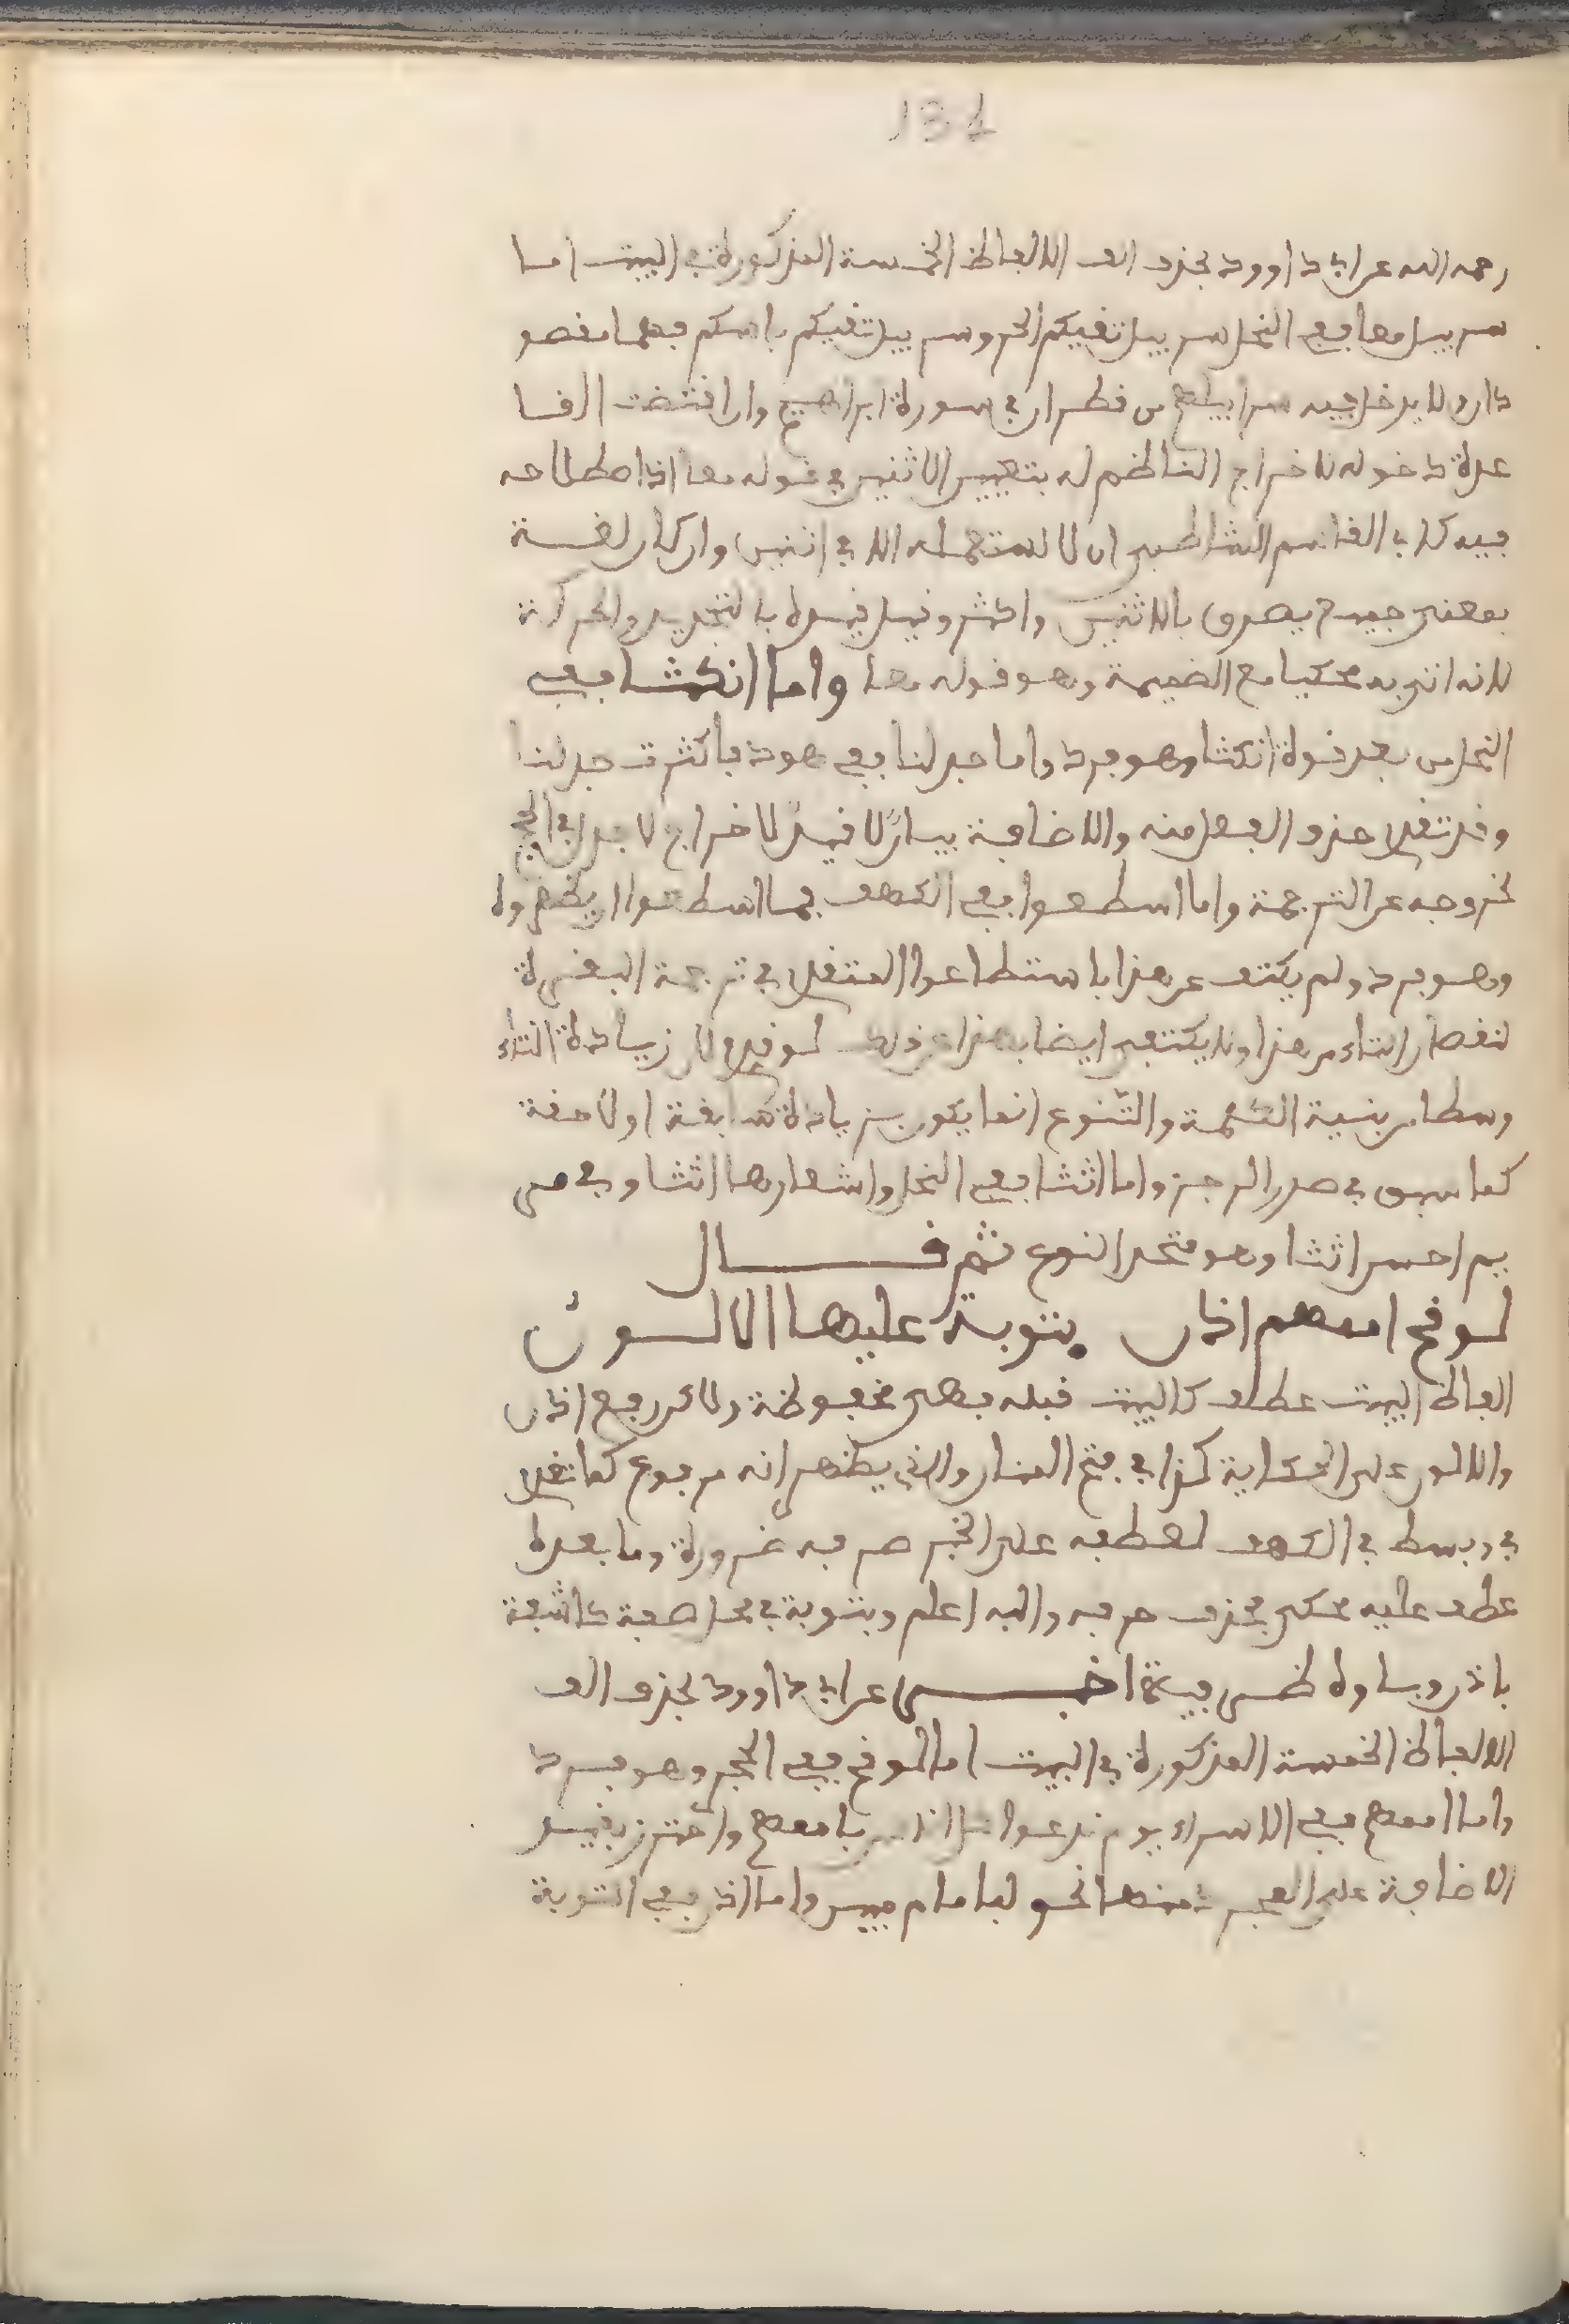 134
رحمه الله عن ابي داوود بحذف الف الالفاظ الخمسة المذكورة في البيت اما
سربيل معا ففي النحل سربيل تقيكم الحر وسربيل تقيكم باسكم فهما مقصو
دان ولا يدخل فيه سرابيلهم من قطران في سورة ابراهيم وان اقتضت القا
عدة دخوله لاخراج الناظم له بتعيين الاثنين في قوله معا اذ اصطلاحه
فيه كابي القاسم الشاطبي ان لا يستعمله الا في اثنين وان كان لغة
بمعنى جميع يصدق بالاثنين واكثر وقيل قيده بالتجريد والحركة
لانه اتى به محكيا مع الضميمة وهو قوله معا واما انكثا ففي
النحل من بعد قوة انكثا وهو فرد واما جدلنا ففي هود فاكثرت جدلنا
وقد تقدم حذف الفعل منه والاضافة بيان لا قيد لاخراج لا جدال في الحج
لخروجه عن الترجمة واما اسطعوا ففي الكهف فما اسطعوا ان يظهروه
وهو فرد ولم يكتف عن هذا باستطاعوا المتقدم في ترجمة البقرة
لنقصان التاء من هذا ولا يكتفى ايضا بهذا عن ذلك لو قدم لان زيادة التاء
وسطا من بنية الكلمة والتنوع انما يكون بزيادة سابقة او لاحقة
كما سبق في صدر الرجز واما اثثا ففي النحل واشعارها اثثا وفي مر
يم احسن اثثا وهو متحد النوع ثم قال
لوقح امعهم اذان بتوبة عليها الالون
الفاظ البيت عطف كالبيت قبله فهي مخفوظة ولاكن رفع اذان
والالون على الحكاية كذا في فتح المنان والذي يظهر انه مرفوع كما تقدم
في وبسط في الكهف لعطفه على الخبر صرفه ضرورة وما بعده
عطف عليه محكي بحذف حرفه والله اعلم وبتوبة في محل صفة كاشفة
باذن وباوه ظرفية اخبر عن ابي داوود بحذف الف
الالفاظ الخمسة المذكورة في البيت اما لوقح ففي الحجر وهو فرد
واما امعهم ففي الاسراء يوم ندعوا كل اناس بامعهم واحترز بقيد
الاضافة على الضمير منها نحو لبامام مبين واما اذن ففي التوبة